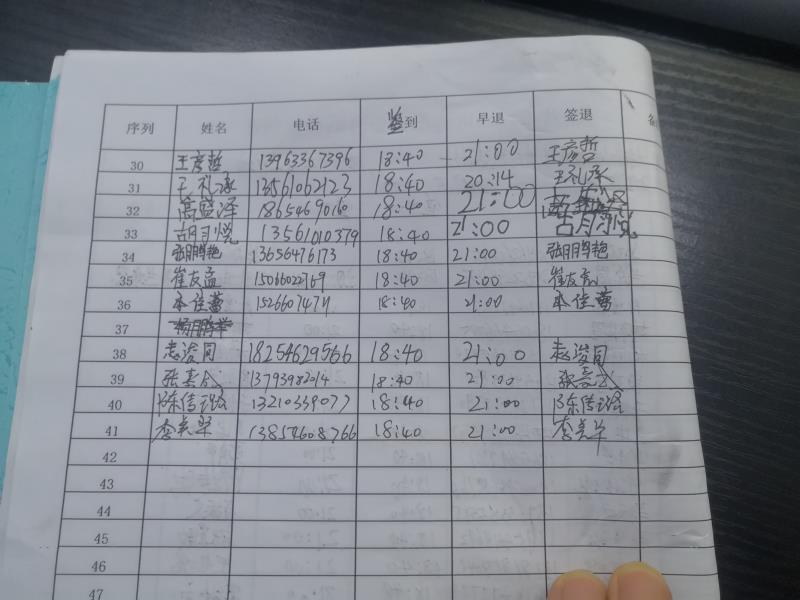 序列 姓名 电话 签到 早退 签退 备
30 王彦哲 13963367396 18:40 21:00 王彦哲
31 王礼承 13561062123 18:40 20:14 王礼承
32 高盛泽 18654690160 18:40 21:00
33 胡月悦 13561010379 18:40 21:00 胡月悦
34 张鹏艳 13656476173 18:40 21:00 张鹏艳
35 崔友孟 15066022769 18:40 21:00 崔友孟
36 李佳蕾 15266074711 18:40 21:00 李佳蕾
37
38 赵浚同 18254629566 18:40 21:00 赵浚同
39 13793982014 18:40 21:00
40 陈传璐 13210339077 18:40 21:00 陈传璐
41 李美华 13854608766 18:40 21:00 李美华
42
43
44
45
46
47